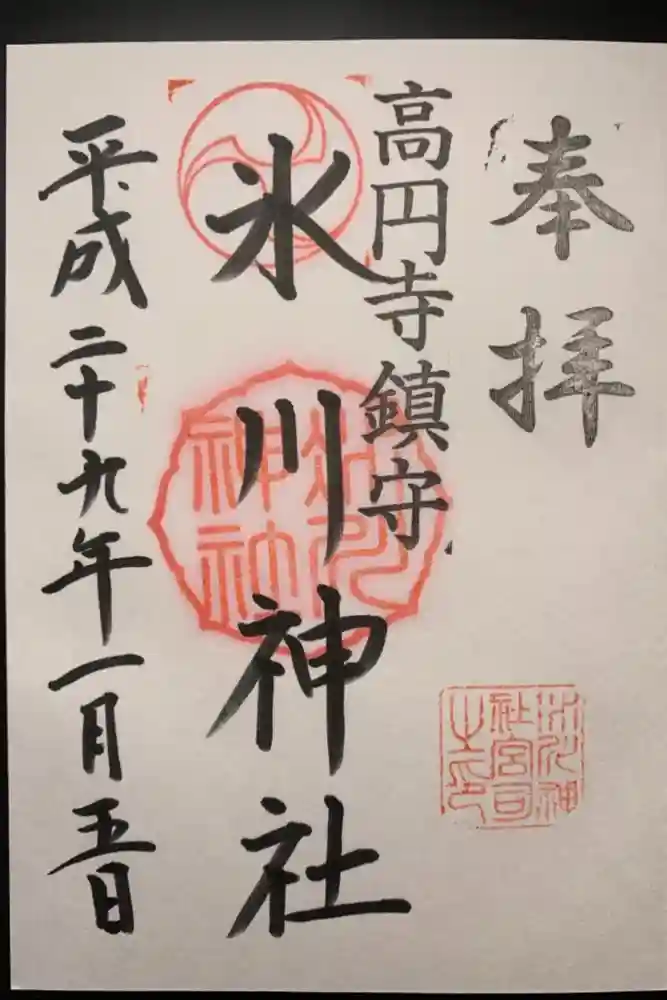 奉拝
高円寺鎮守
氷川神社
平成二十九年一月五日
氷川神社
氷川神社宮司之印